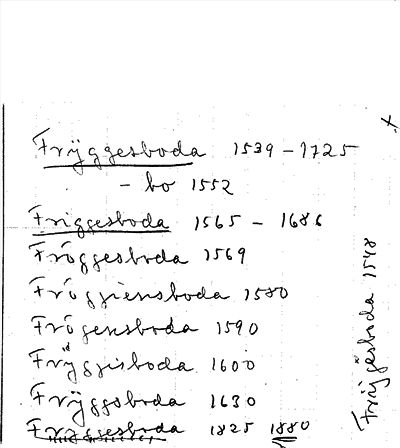 Frÿggesboda 1539 – 1725
– bo 1552
Friggesboda 1565 – 1686
Fröggesboda 1569
Fröggiensboda 1580
Frögensboda 1590
Frÿggisboda 1600
Frÿggoboda 1630
Fryggesboda 1825 1880
Fräÿgesboda 1548
x